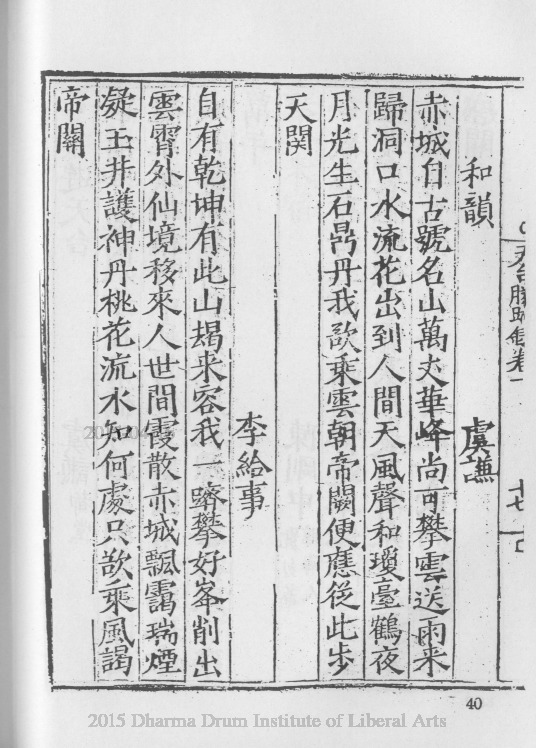 天台勝跡錄卷一 十七
和韻 虞謙
赤城自古號名山萬丈華峰尚可攀雲送雨来
歸洞口水流花出到人間天風聲和瓊臺鶴夜
月光生石鼎丹我欲乘雲朝帝闕便應從此步
天関
李給事
自有乾坤有此山朅来容我一躋攀好峯削出
雲霄外仙境移來人世間霞散赤城飄靄瑞煙
凝玉井護神丹桃花流水知何處只欲乘風謁
帝關
40
2015 Dharma Drum Institute of Liberal Arts